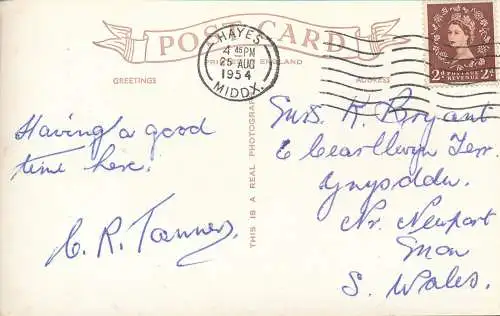 POST CARD
PRINTED ENGLAND
GREETINGS
ADDRESS
HAYES
4 45 PM
25 AUG
1954
MIDDX.
2d POSTAGE REVENUE 2d
THIS IS A REAL PHOTOGRAPH
Having a good
time here.
C. R. Tanner.
K. Bryant
6 Terr.
Ynysddu.
Nr. Newport
Mon
S. Wales.